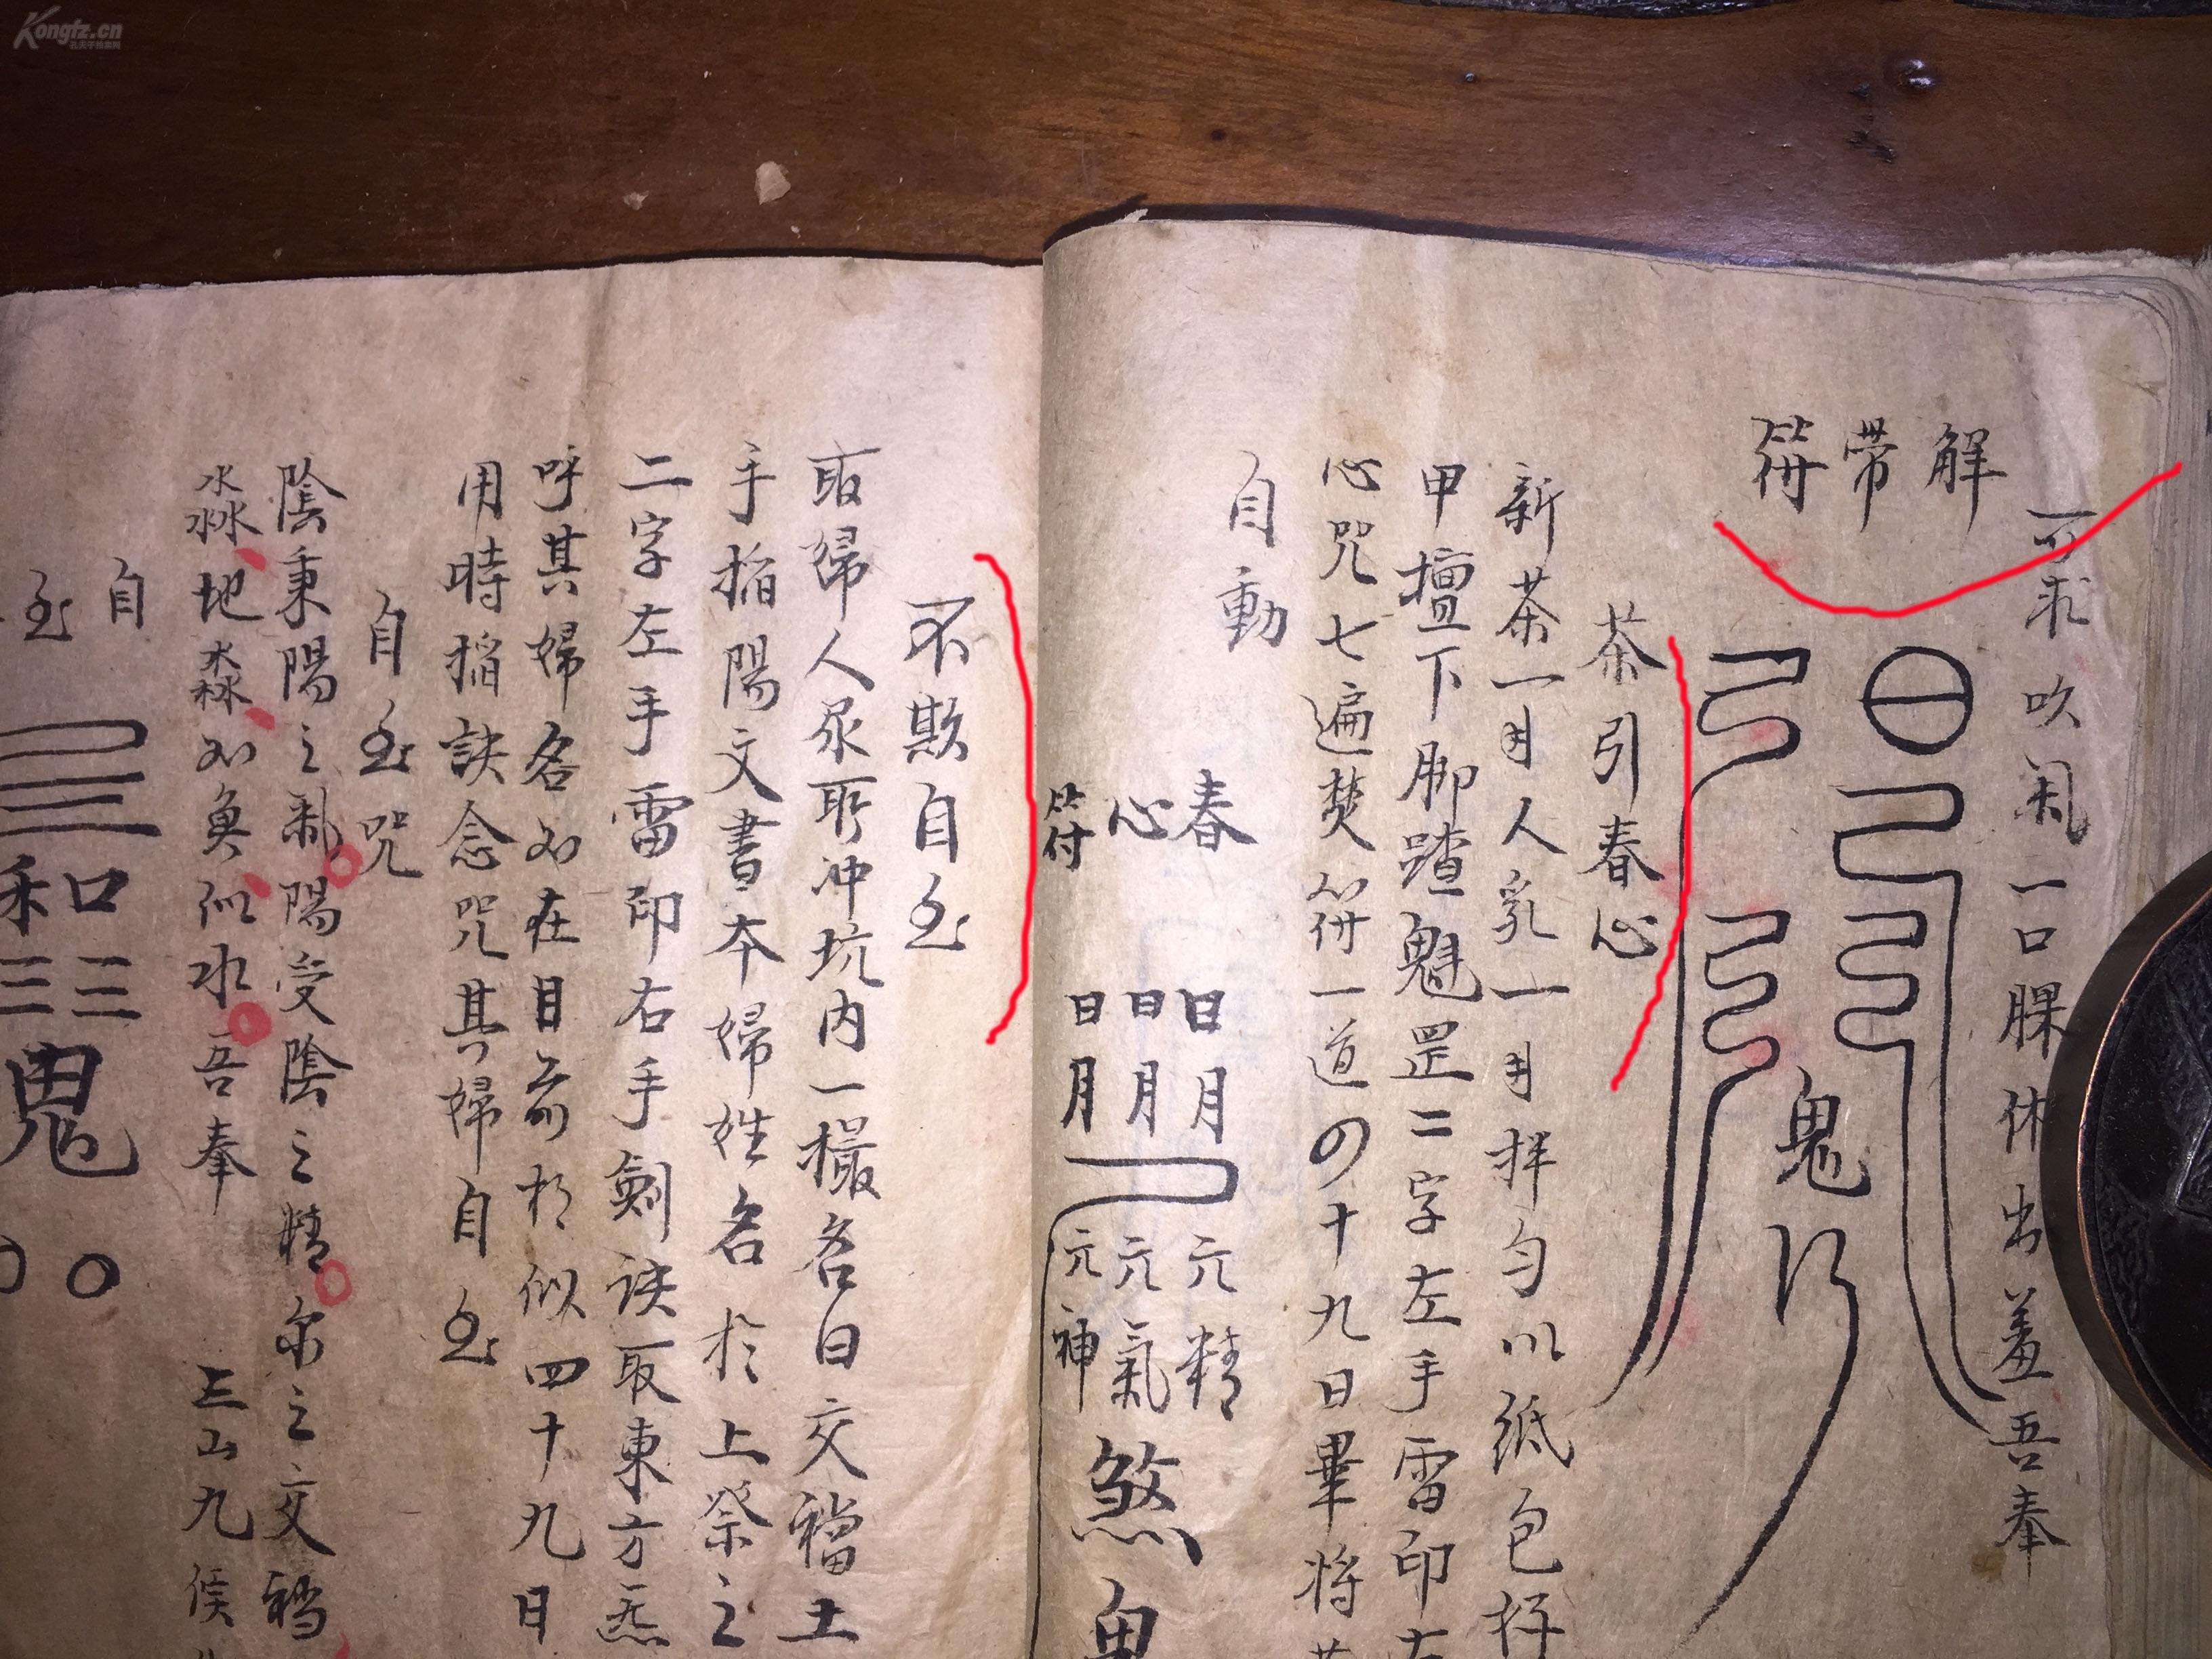 Kongfz.cn
可求吹氣一口裸休出羞吾奉
解帶符
鬼
茶引春心
新茶一目人乳一目拌勻以紙包好
甲壇下脚踏魁罡二字左手雷印右
心咒七遍焚符一道四十九日畢將茶
自動
春心符
日月 元精
日月 元氣
日月 元神
煞
鬼
不欺自至
取婦人尿所冲坑内一撮名曰交襠土
手搯陽文書本婦姓名於上祭之
二字左手雷印右手劍訣取東方炁
呼其婦名如在目前相似四十九日
用時搯訣念咒其婦自至
自至咒
陰秉陽之氣陽受陰之精尔之交襠
淼地淼如魚似水吾奉
自至
口和
三三
鬼
三山九侯